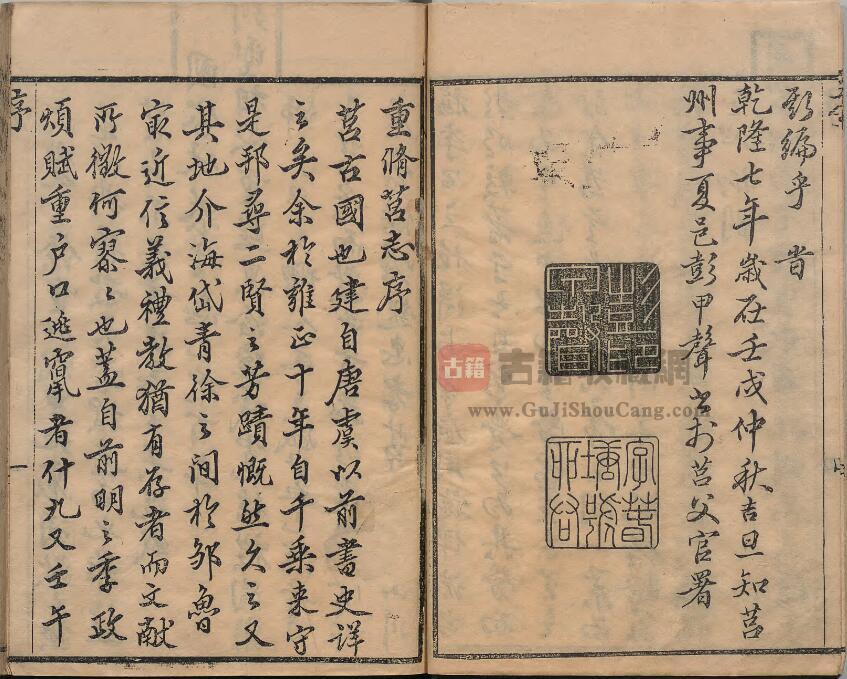 影編乎旹
乾隆七年歲在壬戌仲秋吉旦知莒
州事夏邑彭甲聲書於莒父官署
古籍
古籍收藏網
www.GuJiShouCang.com
重脩莒志序
莒古國也建自唐虞以前書史詳
之矣余於雍正十年自千乘来守
是邦尋二賢之芳蹟慨然久之又
其地介海岱青徐之间於邹魯
㝡近信義禮教猶有存者而文献
所徵何寥〻也蓋自前明之季政
煩賦重户口逃竄者什九又壬午
序
一